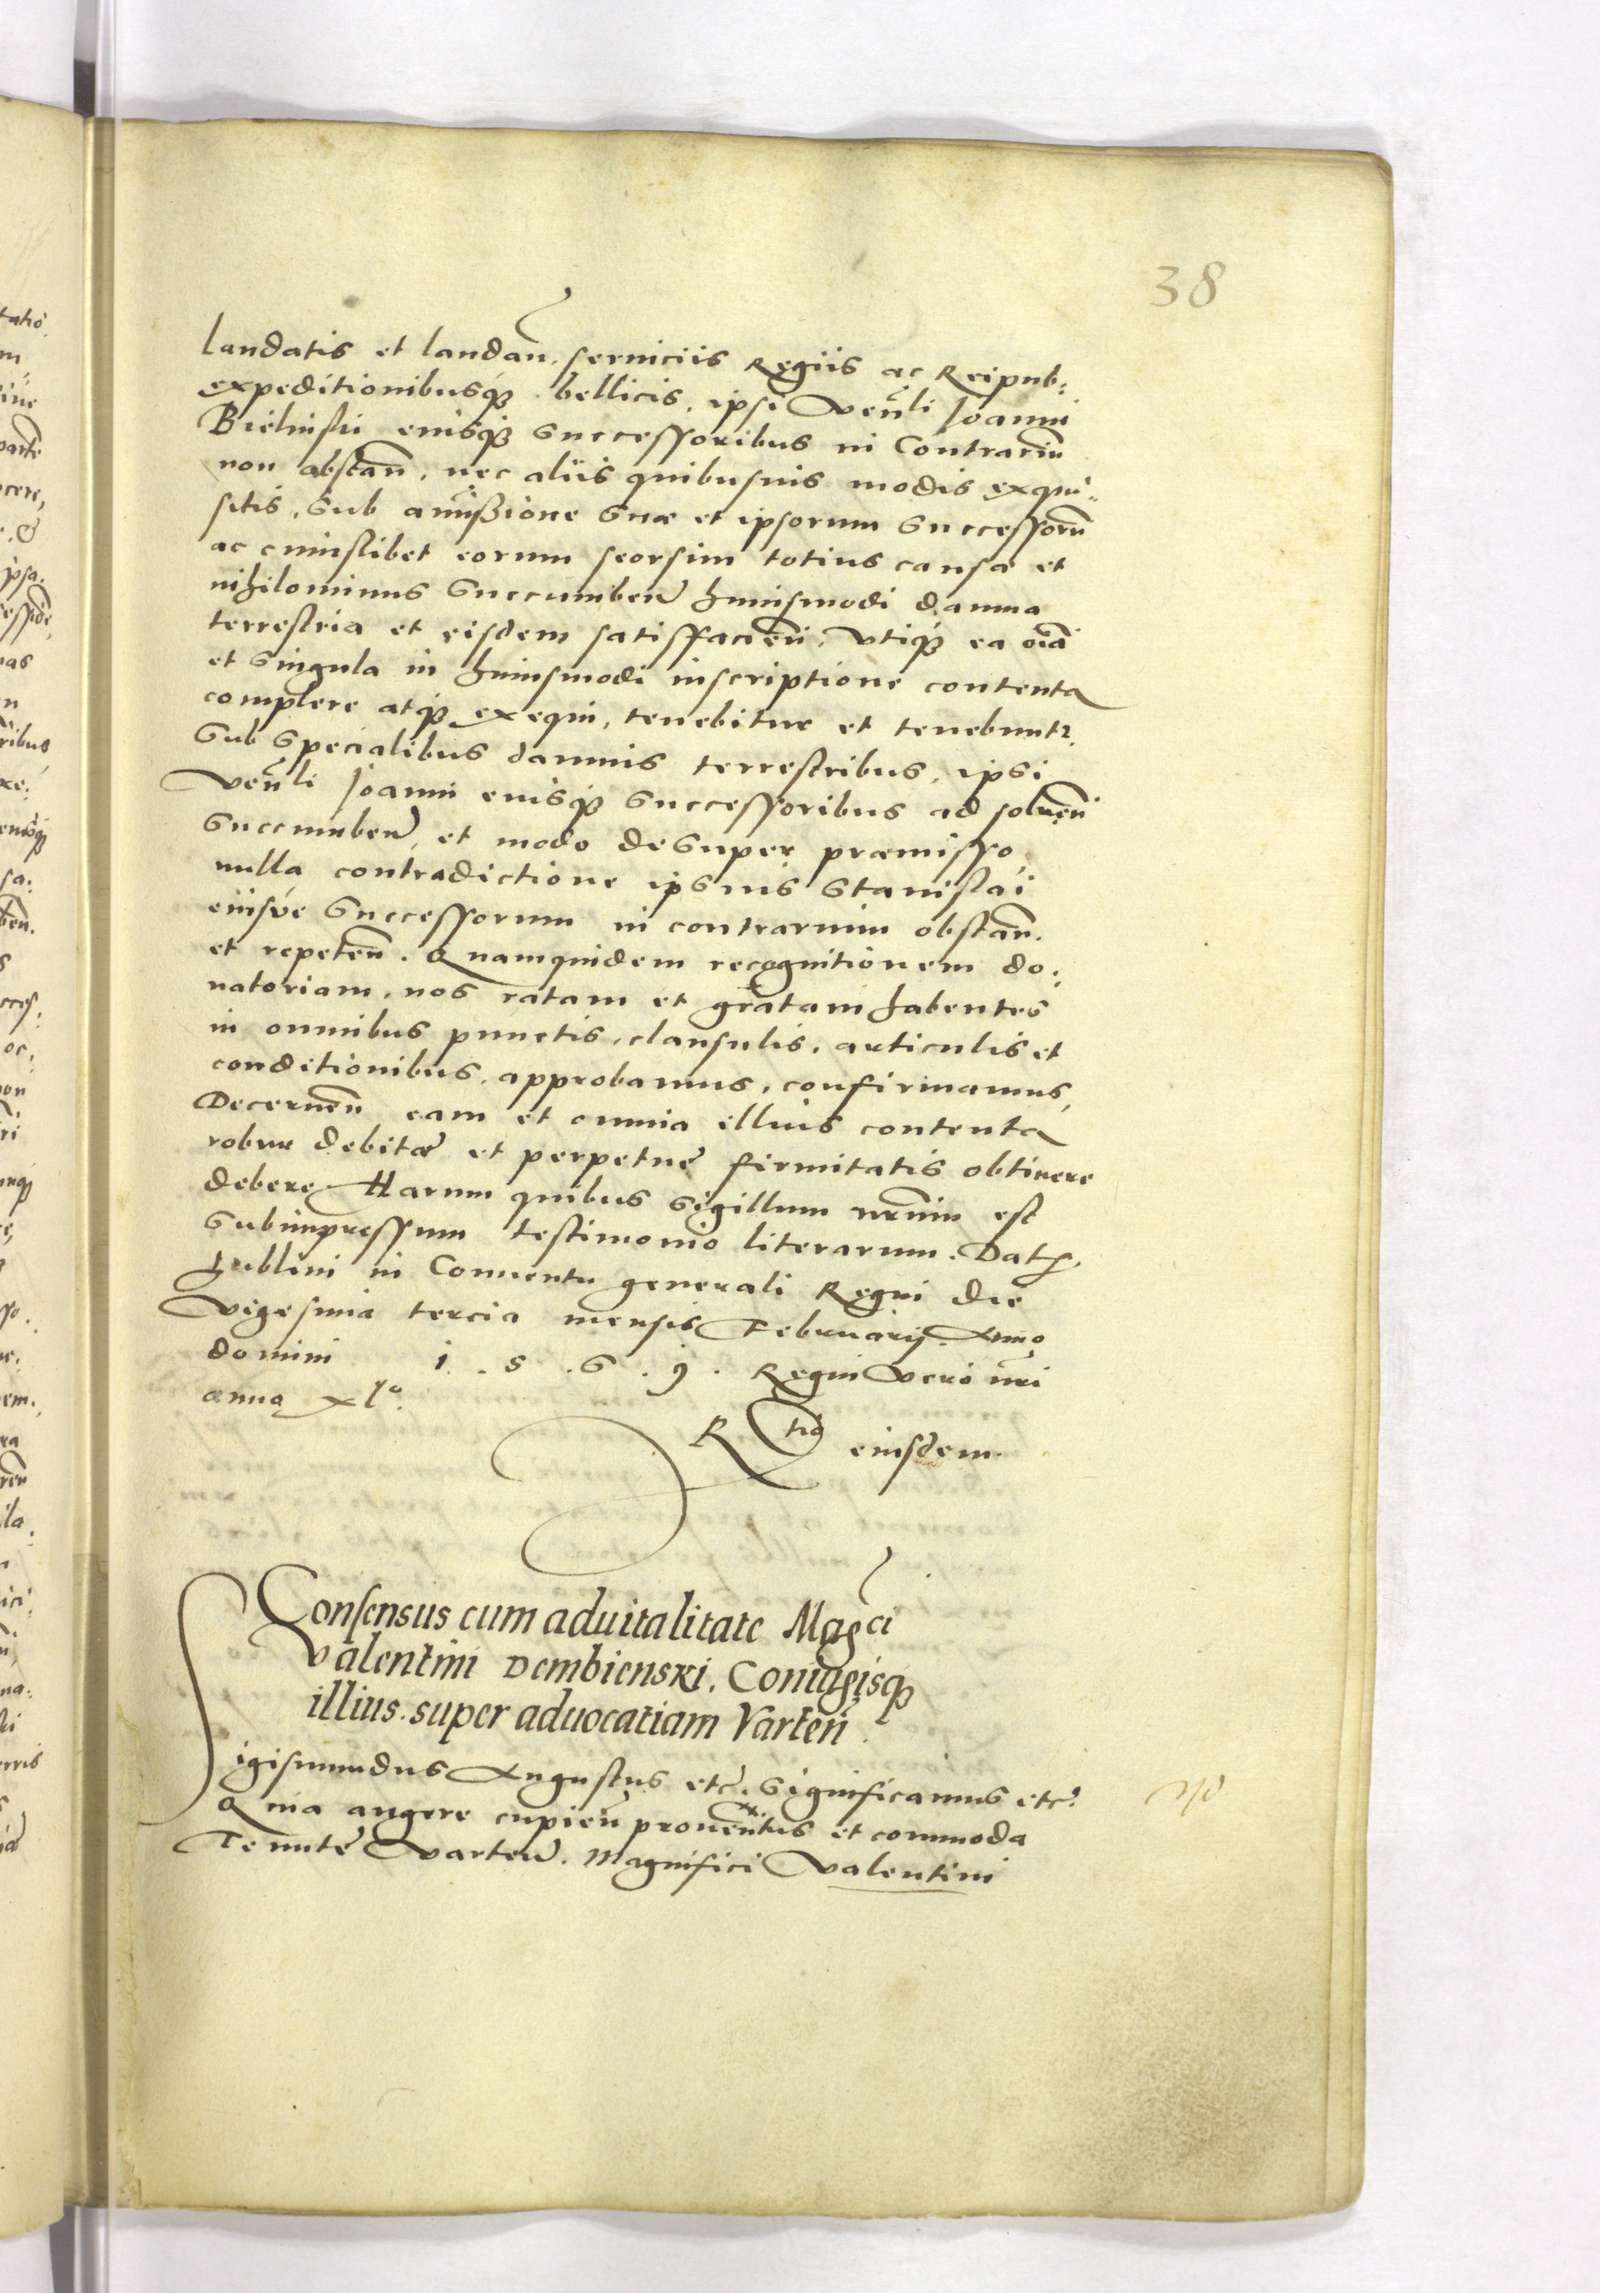 38
laudatis et laudan̄. seruiciis Regiis ac Reipub:
expeditionibusq̢ bellicis, ipsi Ven̄li Joanni
Bielinski eiusq̢ successoribus in Contrariū
non obstan̄, nec aliis quibusuis modis exqui-
sitis, sub amissione suæ et ipsorum successorū
ac cuiuslibet eorum seorsim totius causæ et
nihilominus succumben̄ huiusmodi damna
terrestria et eisdem satisfacien̄. Vtiq̢ ea oīa
et singula in huiusmodi inscriptione contenta
complere atq̢ exequi, tenebitur et tenebuntr.
Sub specialibus damnis terrestribus, ipsi
Ven̄li Joanni eiusq̢ successoribus ad soluen̄
succumben̄, et modo desuper præmisso,
nulla contradictione ipsius Stanislai
eiusve successorum in contrarium obstan̄.
et repeten̄. Quamquidem recognitionem do:
natoriam, nos ratam et gratam habentes
in omnibus punctis, clausulis, articulis et
conditionibus, approbamus, confirmamus,
Decernen̄ eam et omnia illius contenta
robur debitæ et perpetuę firmitatis obtinere
debere Harum quibus sigillum nr̄um est
subimpressum testimonio literarum. Dat.
Lublini in Conuentu generali Regni die
Vigesima tercia mensis Februarij. Anno
domini 1.5.6.9. Regni Vero nr̄i
anno xlº.
Rtio eiusdem.
Consensus cum aduitalitate Magci
Valentini Dembienski, Coniugisq̢
illius. super aduocatiam Varten̄.
Sigismundus Augustus etc. Significamus etc.
Quia augere cupien̄ prouentus et commoda
Tenutę Varten̄. Magnifici Valentini